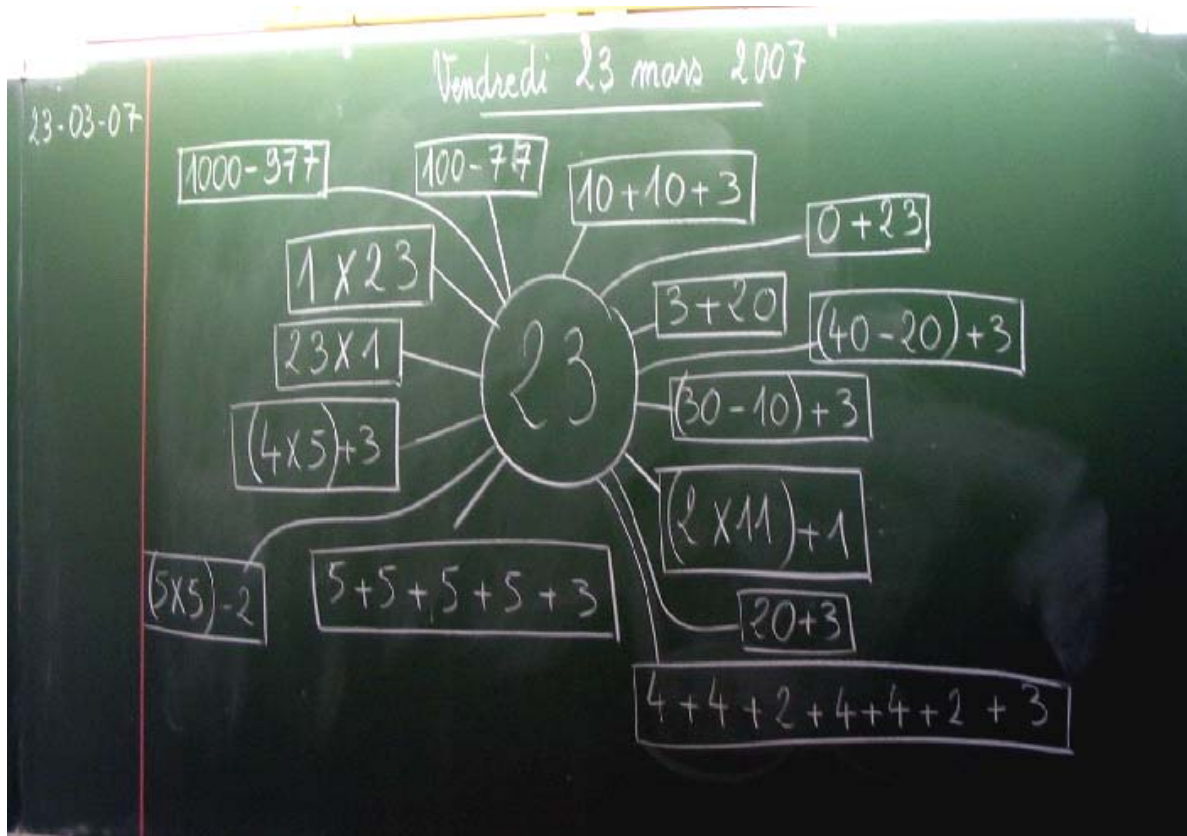 Vendredi 23 mars 2007
23-03-07
1000-977
100-77
10+10+3
0+23
1 x 23
3+20
(40-20)+3
23x1
23
(30-10)+3
(4x5)+3
(2x11)+1
(5x5)-2
5+5+5+5+3
20+3
4+4+2+4+4+2+3